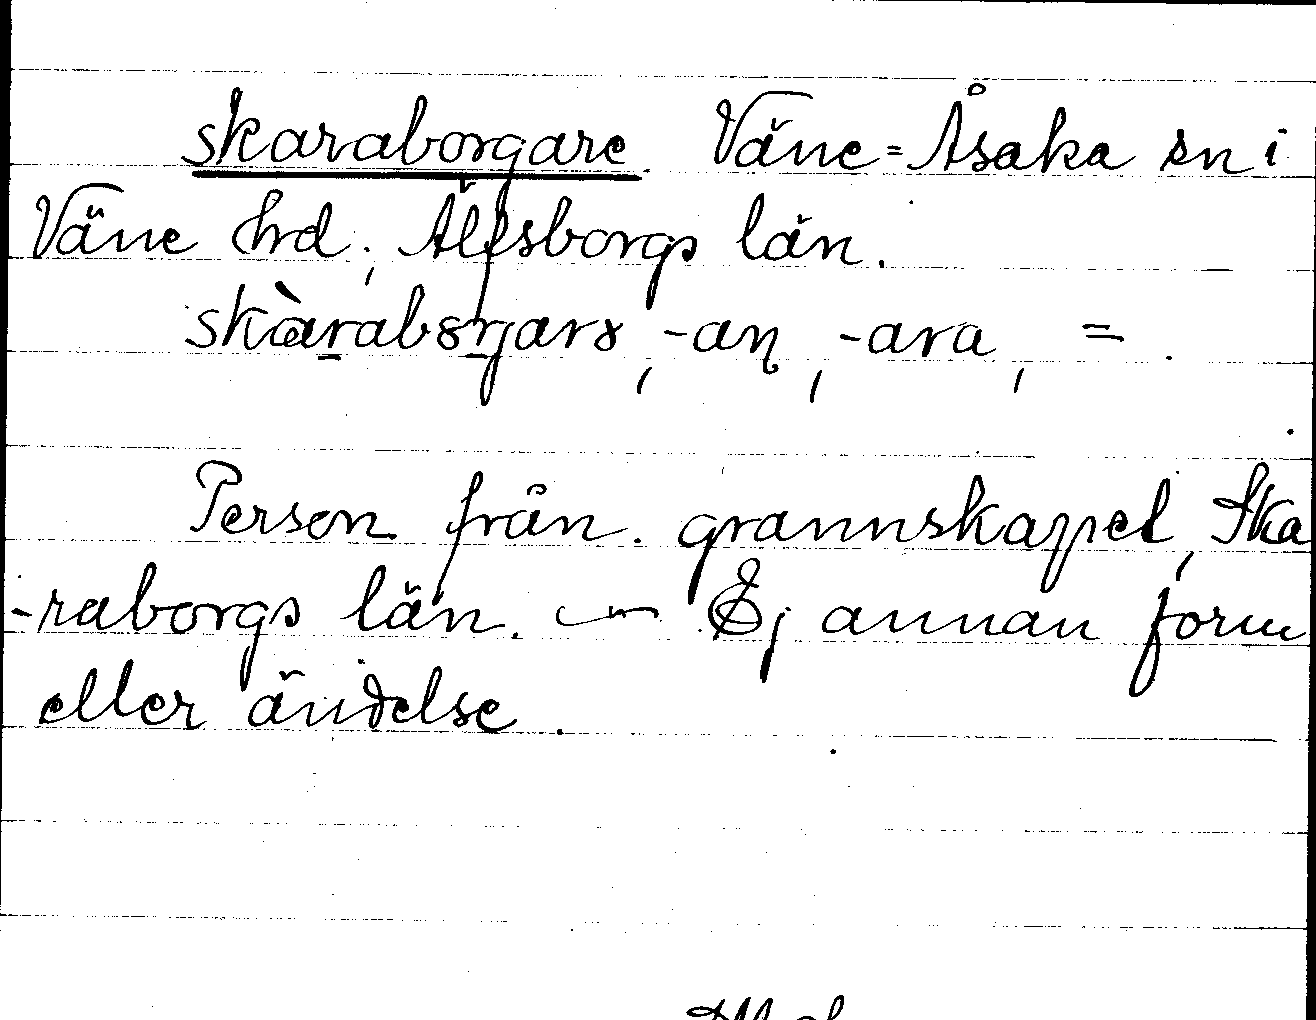 skaraborgare Väne-Åsaka sn i
Väne hrd, Älfsborgs län.
skàrabȣrjarȣ, -aɳ, -ara, =.
Person från grannskapet, Ska
-raborgs län. — Ej annan form
eller ändelse.